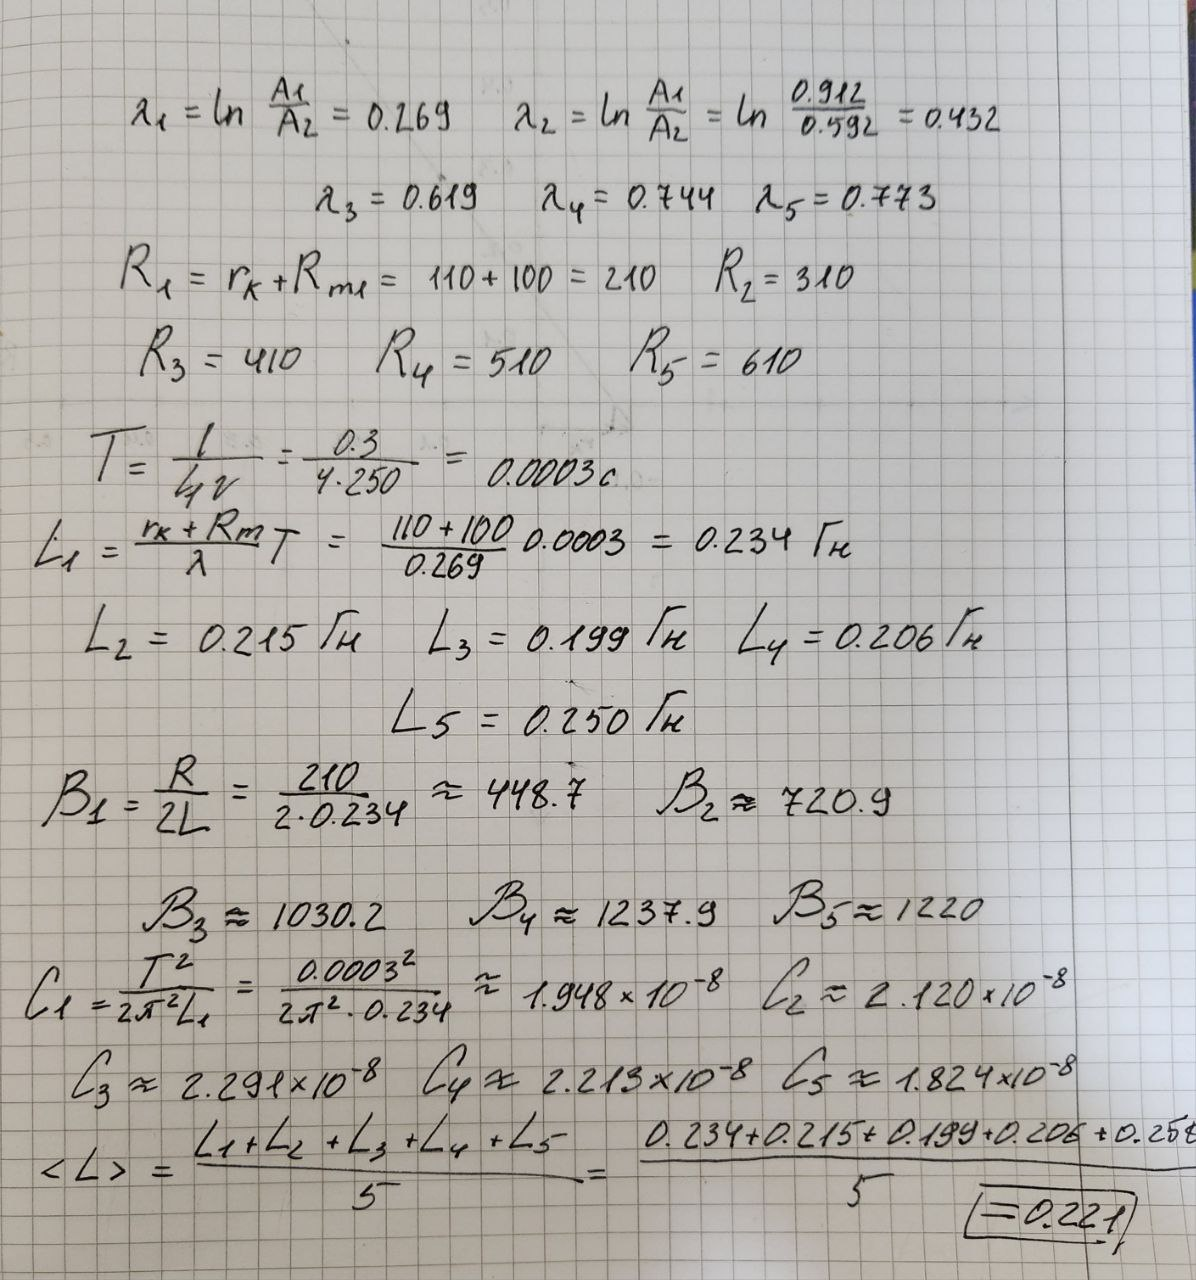 λ₁ = ln A1/A2 = 0.269 λ₂ = ln A1/A2 = ln 0.912/0.592 = 0.432
λ₃ = 0.619 λ₄ = 0.744 λ₅ = 0.773
R₁ = rк + Rm1 = 110 + 100 = 210 R₂ = 310
R₃ = 410 R₄ = 510 R₅ = 610
T = l/4ν = 0.3/4·250 = 0.0003 с
L₁ = rк + Rm/λ T = 110 + 100/0.269 0.0003 = 0.234 Гн
L₂ = 0.215 Гн L₃ = 0.199 Гн L₄ = 0.206 Гн
L₅ = 0.250 Гн
β₁ = R/2L = 210/2·0.234 ≈ 448.7 β₂ ≈ 720.9
β₃ ≈ 1030.2 β₄ ≈ 1237.9 β₅ ≈ 1220
C₁ = T²/2π²L₁ = 0.0003²/2π²·0.234 ≈ 1.948×10⁻⁸ C₂ ≈ 2.120×10⁻⁸
C₃ ≈ 2.291×10⁻⁸ C₄ ≈ 2.213×10⁻⁸ C₅ ≈ 1.824×10⁻⁸
<L> = L₁+L₂+L₃+L₄+L₅/5 = 0.234+0.215+0.199+0.206+0.25/5
= 0.221